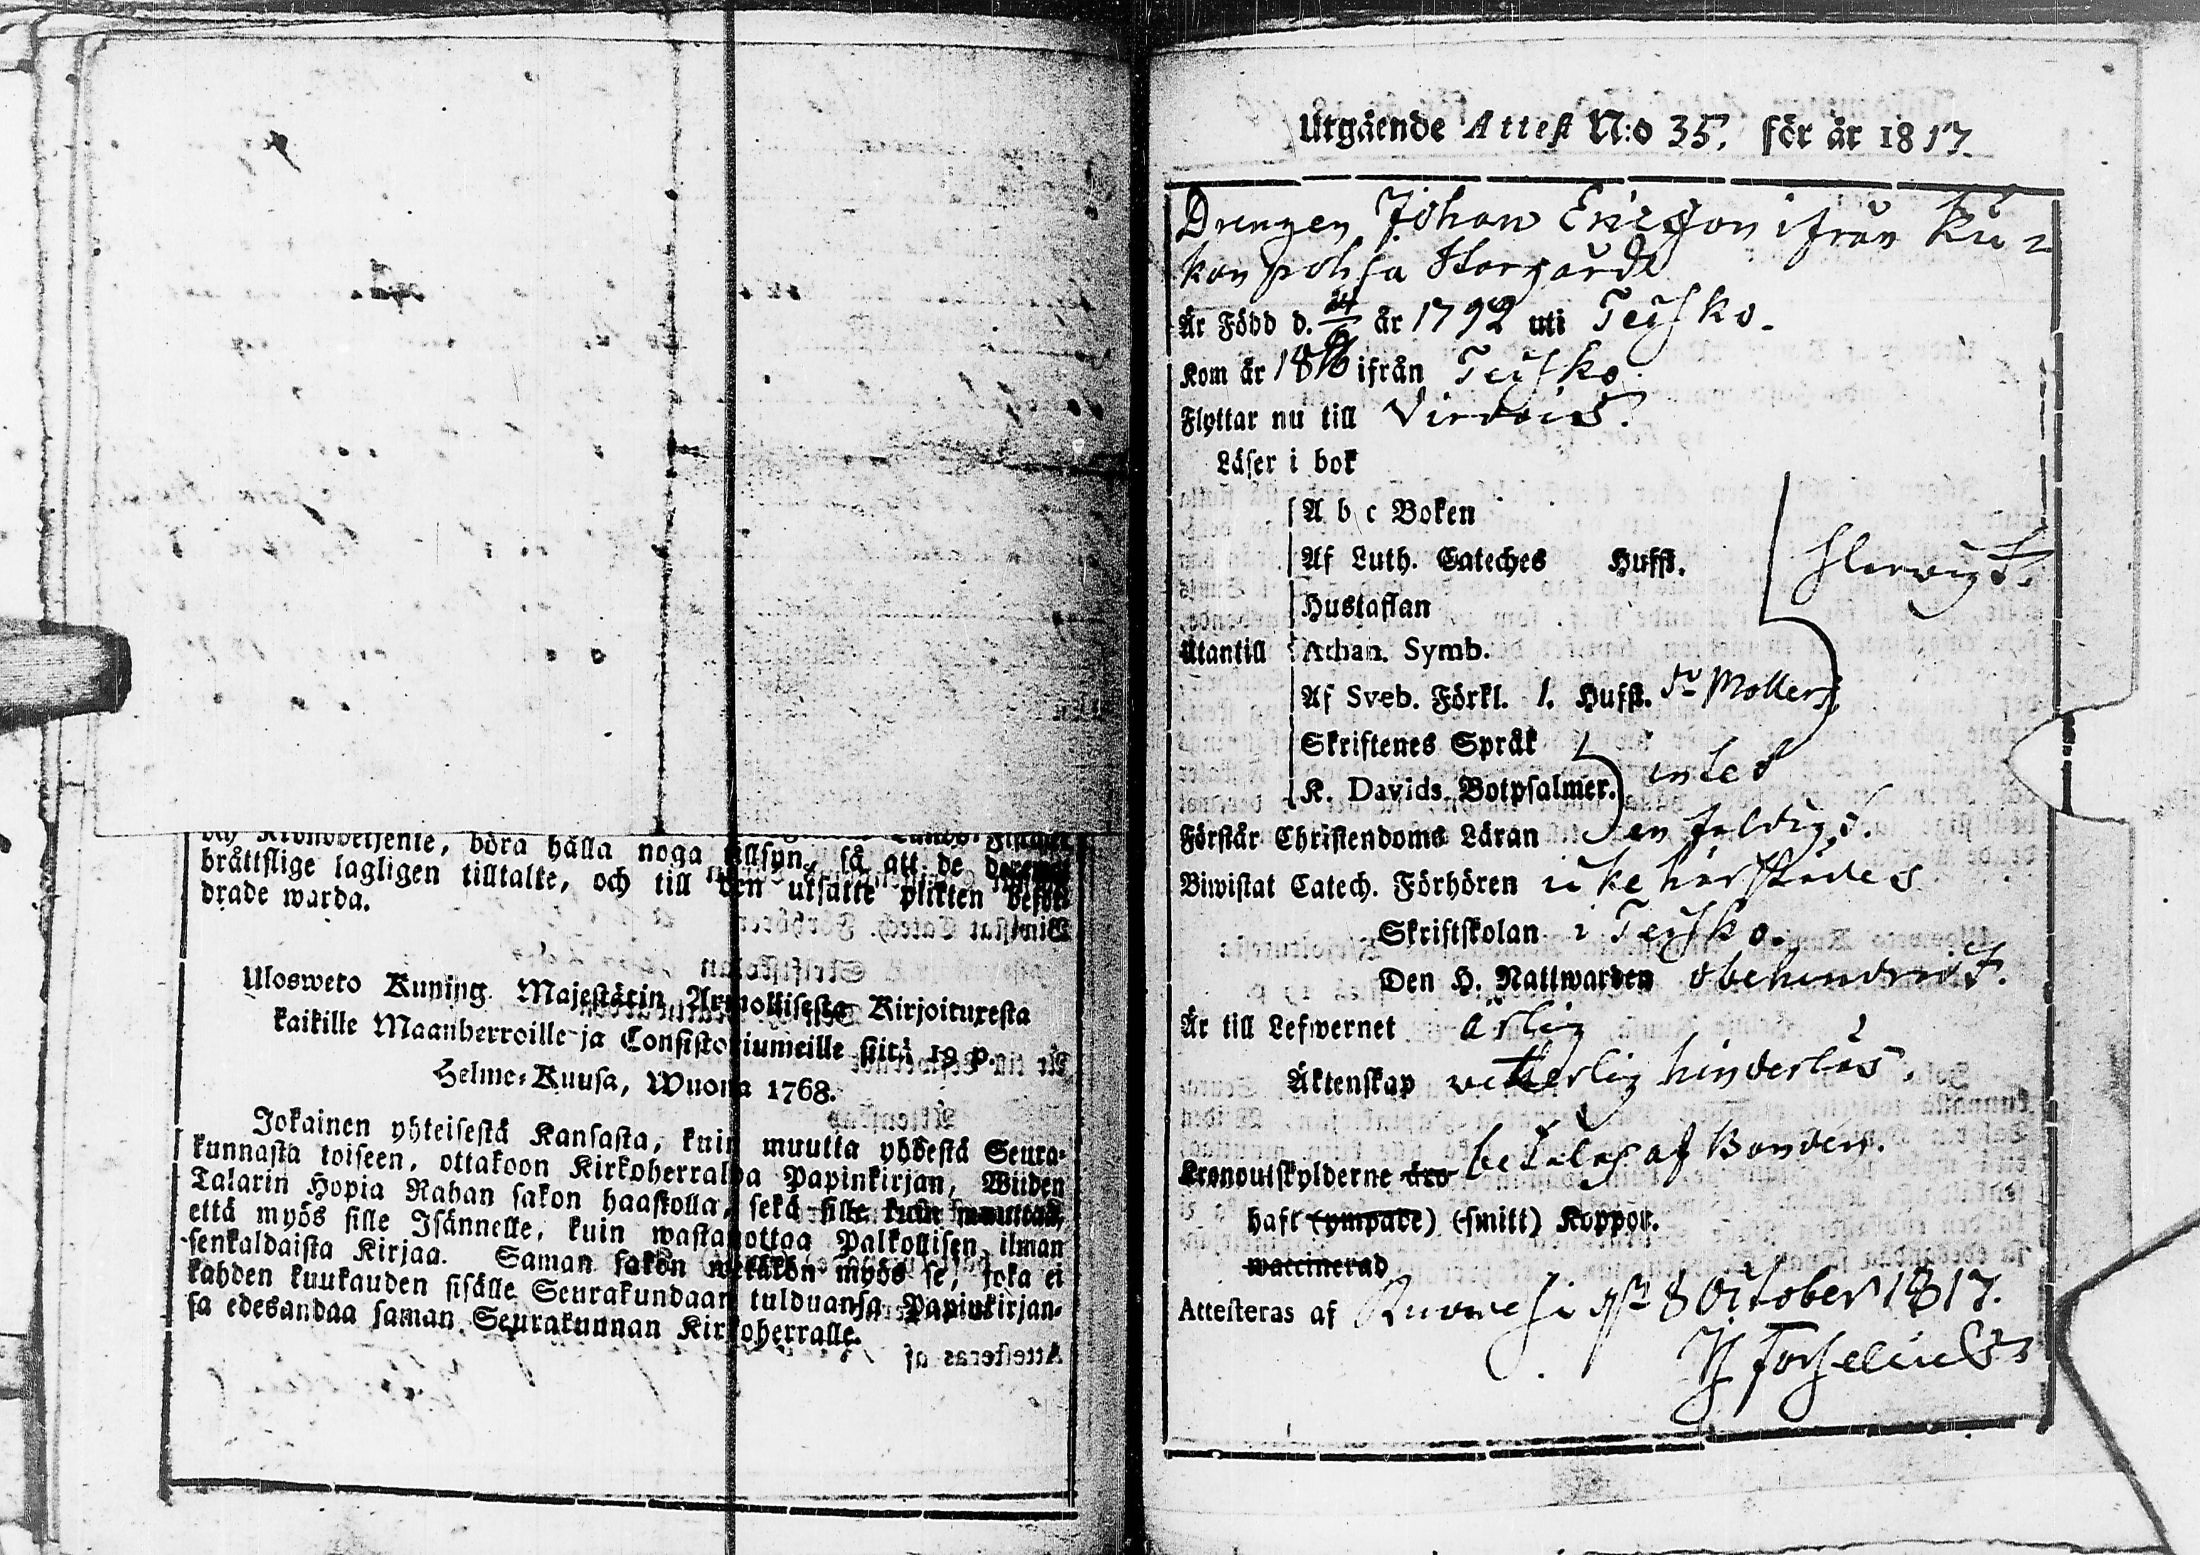 och Kronobetjente, böra hålla noga tillsyn, så att de deremot
bråttslige lagligen tilltalte, och till den utsatte plikten beför-
drade warda.
Ulosweto Kuning. Majestätin Armollisesta Kirjoituxesta
kaikille Maanherroille ja Consistoriumeille siitä 19 p.
Helme-Kuusa, Wuonna 1768.
Jokainen yhteisestä Kansasta, kuin muutta yhdestä Seura-
kunnasta toiseen, ottakoon Kirkoherralda Papinkirjan, Wiiden
Talarin Hopia Rahan sakon haastolla, sekä sille kuin muuttaa,
että myös sille Isännelle, kuin wastanottaa Palkollisen ilman
senkaldaista Kirjaa. Saman sakon wetäkön myös se, joka ei
kahden kuukauden sisälle Seurakundaan tulduansa Papinkirjan-
sa edesandaa saman Seurakunnan Kirkoherralle.
Utgående Attest N:o 35. för år 1817.
Drengen Johan Ericsson ifrån Ku-
konpohja Storgård
Är Född d. år 1792 uti Teisko.
Kom år 1816 ifrån Teisko
Flyttar nu till Virdois.
Läser i bok
A b c Boken
Af Luth. Cateches Hufst.
Hustaflan
Utantill Athan. Symb.
Af Sveb. Förkl. 1. Hufst. Möllers
Skriftenes Språk
K. Davids Botpsalmer. intet
Förstår Christendoms Läran enfaldigt.
Biwistat Catech. Förhören icke härstädes
Skriftskolan i Teisko.
Den H. Nattwarden obehindrat.
Är till Lefwernet ärlig
Äktenskap veterlig hinderlös.
Kronoutskylderne äro betalas af Bonden.
haft (ympade) (smitt) Koppor.
waccinerad
Attesteras af Ruovesi 8 October 1817.